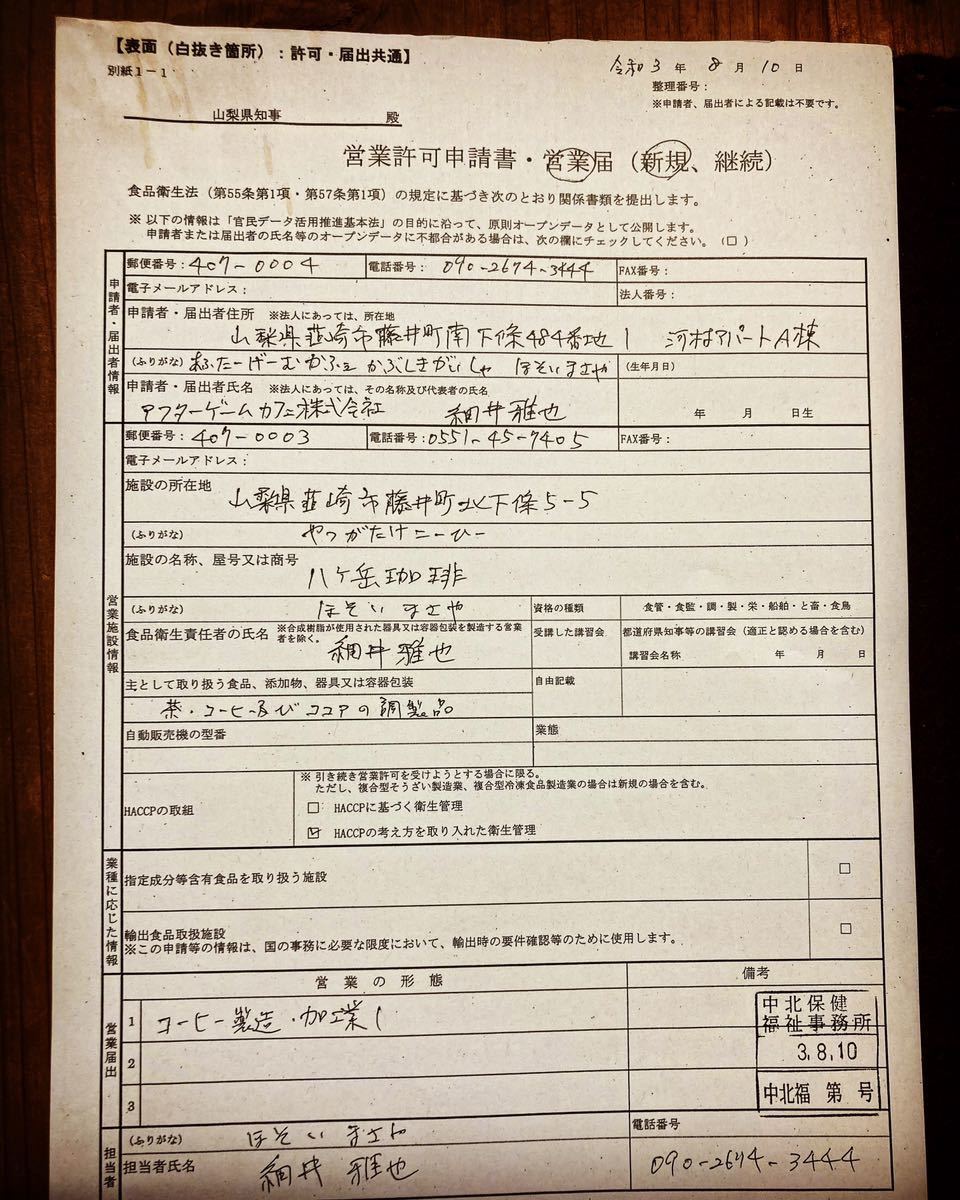 【表面(白抜き箇所):許可・届出共通】
別紙1-1
令和3年8月10日
整理番号:
※申請者、届出者による記載は不要です。
山梨県知事 殿
営業許可申請書・営業届(新規、継続)
食品衛生法(第55条第1項・第57条第1項)の規定に基づき次のとおり関係書類を提出します。
※ 以下の情報は「官民データ活用推進基本法」の目的に沿って、原則オープンデータとして公開します。
申請者または届出者の氏名等のオープンデータに不都合がある場合は、次の欄にチェックしてください。(□)
申請者・届出者情報
郵便番号:407-0004 電話番号:090-2674-3444 FAX番号:
電子メールアドレス: 法人番号:
申請者・届出者住所 ※法人にあっては、所在地
山梨県韮崎市藤井町南下條484番地1 河村アパートA棟
(ふりがな) あふたーげーむかふぇ かぶしきがいしゃ ほそい まさや (生年月日)
申請者・届出者氏名 ※法人にあっては、その名称及び代表者の氏名
アフターゲームカフェ株式会社 細井雅也 年 月 日生
営業施設情報
郵便番号:407-0003 電話番号:0551-45-7405 FAX番号:
電子メールアドレス:
施設の所在地
山梨県韮崎市藤井町北下條5-5
(ふりがな) やつがたけこーひー
施設の名称、屋号又は商号
八ケ岳珈琲
(ふりがな) ほそい まさや 資格の種類 食管・食監・調・製・栄・船舶・と畜・食鳥
食品衛生責任者の氏名 ※合成樹脂が使用された器具又は容器包装を製造する営業者を除く。 受講した講習会 都道府県知事等の講習会(適正と認める場合を含む)
細井 雅也 講習会名称 年 月 日
主として取り扱う食品、添加物、器具又は容器包装 自由記載
茶・コーヒー及びココアの調製品
自動販売機の型番 業態
HACCPの取組
※ 引き続き営業許可を受けようとする場合に限る。
ただし、複合型そうざい製造業、複合型冷凍食品製造業の場合は新規の場合を含む。
□ HACCPに基づく衛生管理
☑ HACCPの考え方を取り入れた衛生管理
業種に応じた情報
指定成分等含有食品を取り扱う施設 □
輸出食品取扱施設 □
※この申請等の情報は、国の事務に必要な限度において、輸出時の要件確認等のために使用します。
営業届出
営業の形態 備考
1 コーヒー製造・加工業
2
3
中北保健
福祉事務所
3.8.10
中北福 第 号
担当者
(ふりがな) ほそい まさや 電話番号
担当者氏名 細井 雅也 090-2674-3444